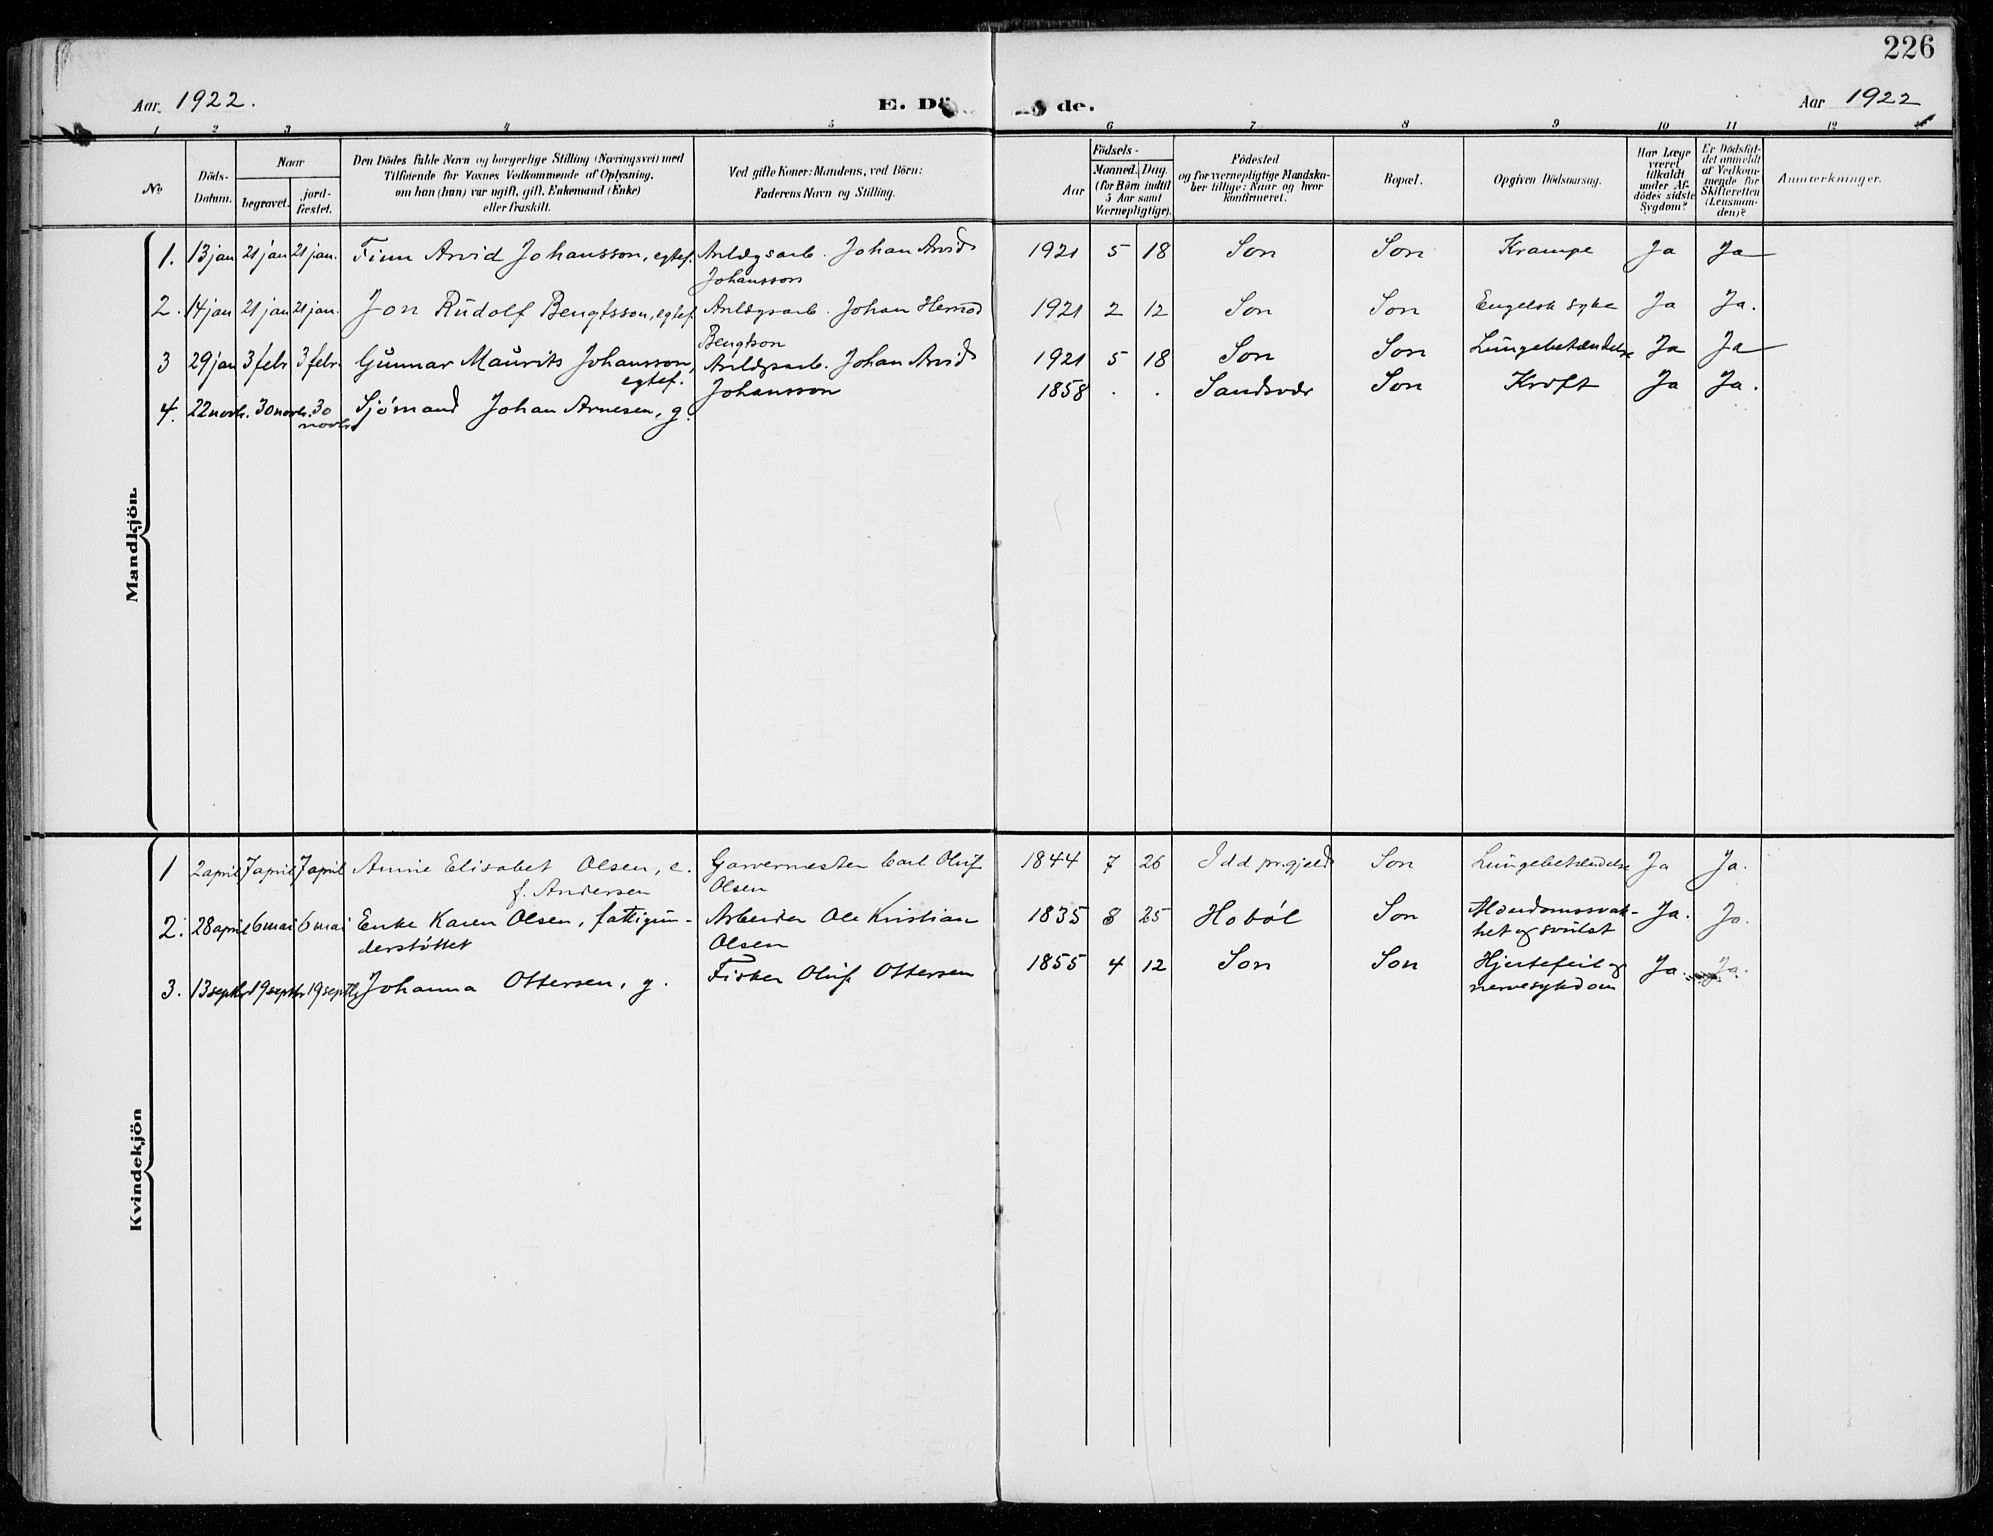 226
Aar 1922.
E. Dö de.
Aar 1922
1 2 3 4 5 6 7 8 9 10 11 12
No
Döds-
Datum.
Naar
begravet.
jord-
fæstet.
Den Dödes fulde Navn og borgerlige Stilling (Næringsvei) med
Tilföiende for Voxnes Vedkommende af Oplysning,
om han (hun) var ugift, gift, Enkemand (Enke)
eller fraskilt.
Ved gifte Koner: Mandens, ved Börn:
Faderens Navn og Stilling.
Födsels-
Aar
Maaned. Dag.
(for Börn indtil
5 Aar samt
Værnepligtige).
Födested
og for værnepligtige Mandska-
ber tillige: Naar og hvor
konfirmeret.
Bopæl.
Opgiven Dödsaarsag.
Har Læge
været
tilkaldt
under Af-
dödes sidste
Sygdom?
Er Dödsfal-
det anmeldt
af Vedkom-
mende for
Skifteretten
(Lensman-
den)?
Anmærkninger.
Mandkjön.
1. 13 jan 21 jan 21 jan. Finn Arvid Johansson, egtef. Anlægsarb. Johan Arvid 1921 5 18 Son Son Krampe Ja Ja
Johansson
2. 14 jan 21 jan 21 jan. Jon Rudolf Bengtsson, egtef. Anlægsarb. Johan Hemod 1921 2 12 Son Son Engelsk syke Ja Ja.
Bengtson
3 29 jan 3 febr 3 febr. Gunnar Maurits Johansson, Anlægsarb. Johan Arvid 1921 5 18 Son Son Lungebetændelse Ja Ja
egtef.
Johansson
4. 22 novbr. 30 novbr. 30 Sjømand Johan Arnesen, g. 1858 . . Sandsvær Son Kræft Ja Ja.
novbr.
Kvindekjön
1 2 april 7 april 7 april Annie Elisabet Olsen, e. Garvermester Carl Oluf 1844 7 26 Idd pr.gjeld Son Lungebetændelse Ja Ja.
f. Andersen Olsen
2. 28 april 6 mai 6 mai Enke Karen Olsen, fattigun- Arbeider Ole Kristian 1835 8 25 Hobøl Son Alderdomssvak- Ja. Ja.
derstøttet Olsen het og svulst
3. 13 septbr 19 septbr 19 septbr Johanna Ottersen, g. Fisker Oluf Ottersen 1855 4 12 Son Son Hjertefeil og Ja. Ja.
nervesykdom